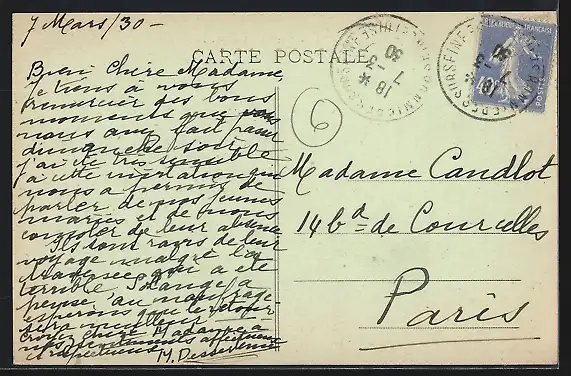 7 Mars/30 -
CARTE POSTALE
Bien Chère Madame
Je tiens à vous
remercier des bons
moments que vous
nous avez fait passer
dimanche soir
j'ai été très sensible
à cette invitation qui
nous a permis de
parler de nos jeunes
mariés et de nous
consoler de leur absence
Ils sont ravis de leur
voyage malgré la
traversée qui a été
terrible Solange a
pensé au naufrage
espérons que le retour
sera meilleur
Croyez chère Madame à
mes sentiments affectueux
et respectueux
6
Madame Candlot
14 bd de Courcelles
Paris
18
7 - 3
30
18
7 - 3
30
POSTES